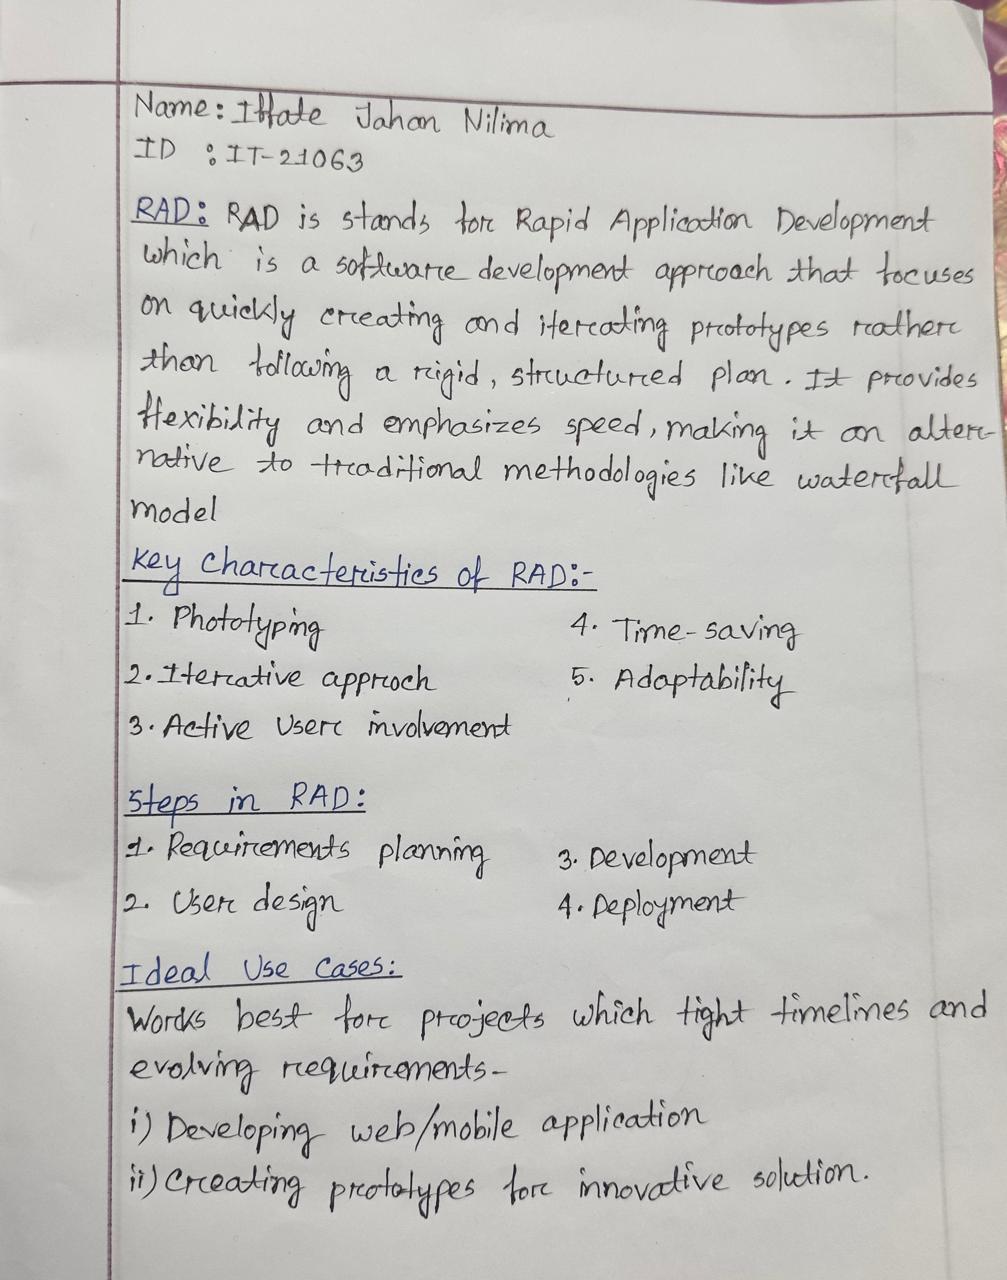 Name: Iffate Jahan Nilima
ID : IT-21063
RAD: RAD is stands for Rapid Application Development
which is a software development approach that focuses
on quickly creating and iterating prototypes rather
than following a rigid, structured plan. It provides
flexibility and emphasizes speed, making it an alter-
native to traditional methodologies like waterfall
model
Key Characteristics of RAD:-
1. Phototyping
2. Iterative approch
3. Active User involvement
4. Time-saving
5. Adaptability
Steps in RAD:
1. Requirements planning
2. User design
3. Development
4. Deployment
Ideal Use Cases:
Works best for projects which tight timelines and
evolving requirements-
i) Developing web/mobile application
ii) Creating prototypes for innovative solution.